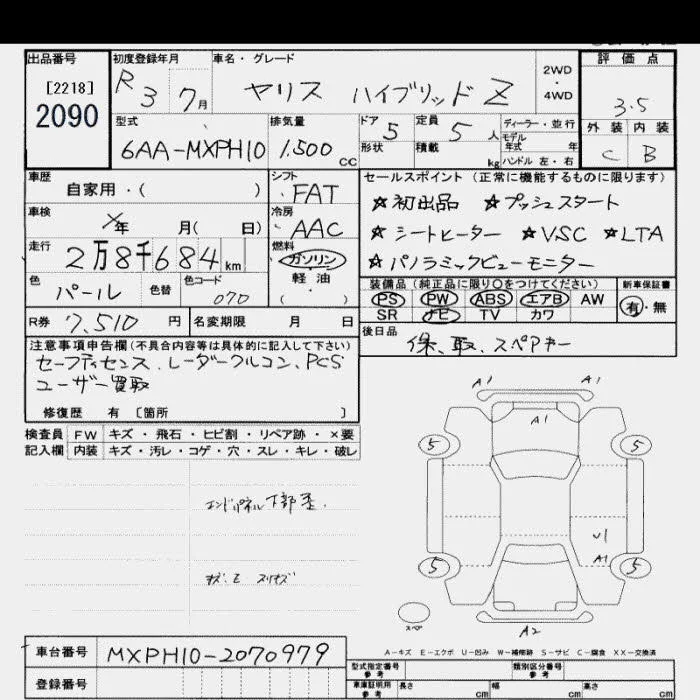 出品番号
[2218]
2090
初度登録年月
R 3 7月
車名・グレード
ヤリス ハイブリッド Z
2WD
・
4WD
評価点
3.5
外装 内装
C B
型式
6AA-MXPH10
排気量
1,500 CC
ドア 5
形状
定員 5 人
積載 kg
ディーラー・並行
モデル
年式 年
ハンドル 左・右
車歴
自家用・( )
シフト
FAT
車検
年 月( 日)
冷房
AAC
走行
2万8千684km
燃料
ガソリン
軽油
( )
色
パール
色替
色コード
070
R券 7,510 円
名変期限 月 日
セールスポイント(正常に機能するものに限ります)
☆初出品 ☆プッシュスタート
☆シートヒーター ☆VSC ☆LTA
☆パノラミックビューモニター
装備品(純正品に限り○をつけてください)
PS PW ABS エアB AW
SR ナビ TV カワ
新車保証書
有・無
後日品
保、取、スペアキー
注意事項申告欄(不具合内容等は具体的に記入して下さい)
セーフティセンス、レーダークルコン、PCS
ユーザー買取
修復歴 有〔箇所 〕
検査員 FW キズ・飛石・ヒビ割・リペア跡・×要
記入欄 内装 キズ・汚レ・コゲ・穴・スレ・キレ・破レ
エンドパネル下部歪.
A1 A1
A1
5 5
U1
A1
5 5
スペア
A2
A-キズ E-エクボ U-凹み W-補修跡 S-サビ C-腐食 XX-交換済
車台番号 MXPH10-2070979
登録番号
型式指定番号
参考
類別区分番号
参考
車庫証明用
参考
長さ cm 幅 cm 高さ cm